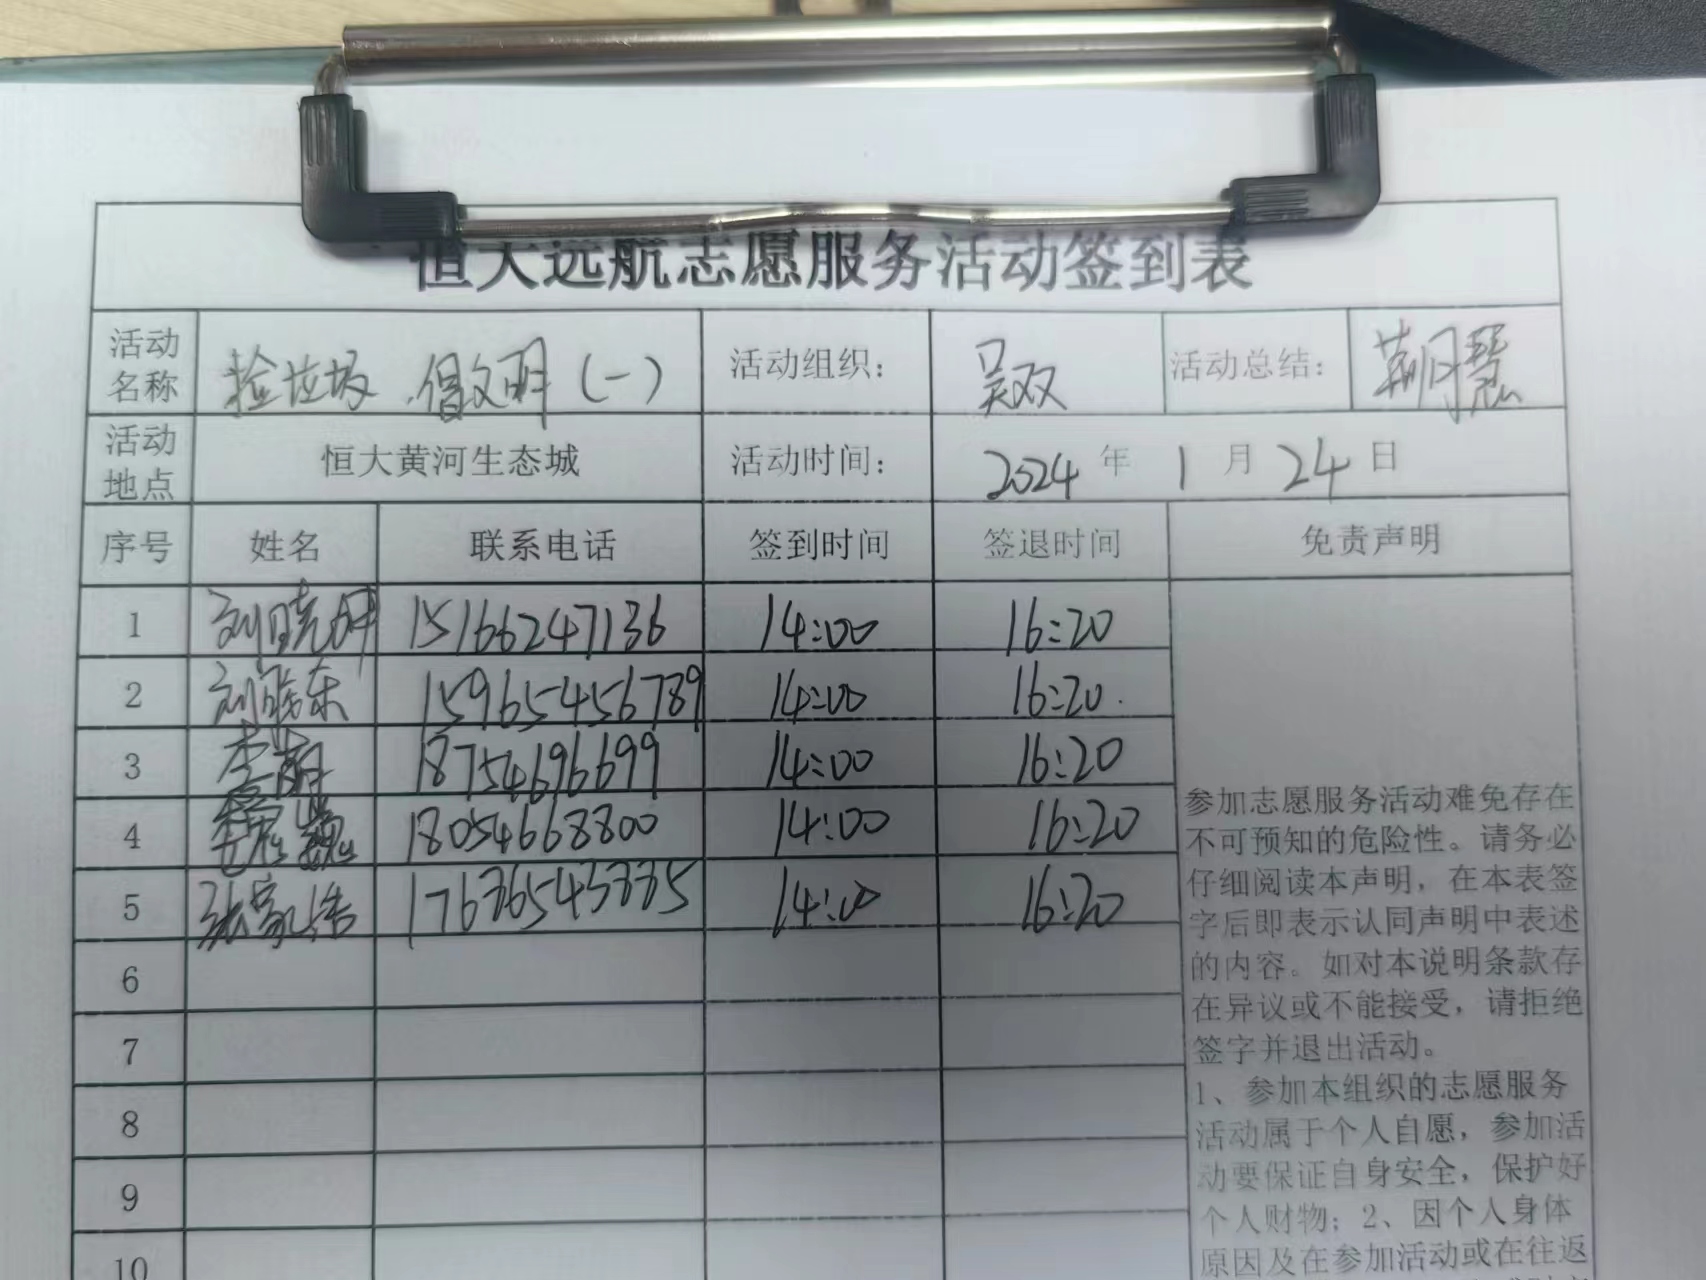 恒大远航志愿服务活动签到表
活动名称 捡垃圾，倡文明（一） 活动组织： 吴双 活动总结： 荆月慧
活动地点 恒大黄河生态城 活动时间： 2024 年 1 月 24 日
序号 姓名 联系电话 签到时间 签退时间 免责声明
1 刘晓烨 15166247136 14:00 16:20
2 刘晓东 159654456789 14:00 16:20
3 李萌 18754696699 14:00 16:20
4 18054668800 14:00 16:20
5 张家浩 14:00 16:20
6
7
8
9
10
参加志愿服务活动难免存在
不可预知的危险性。请务必
仔细阅读本声明，在本表签
字后即表示认同声明中表述
的内容。如对本说明条款存
在异议或不能接受，请拒绝
签字并退出活动。
1、参加本组织的志愿服务
活动属于个人自愿，参加活
动要保证自身安全，保护好
个人财物；2、因个人身体
原因及在参加活动或在往返